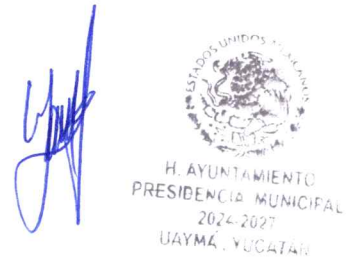 ESTADOS UNIDOS MEXICANOS
H. AYUNTAMIENTO
PRESIDENCIA MUNICIPAL
2024-2027
UAYMÁ, YUCATÁN